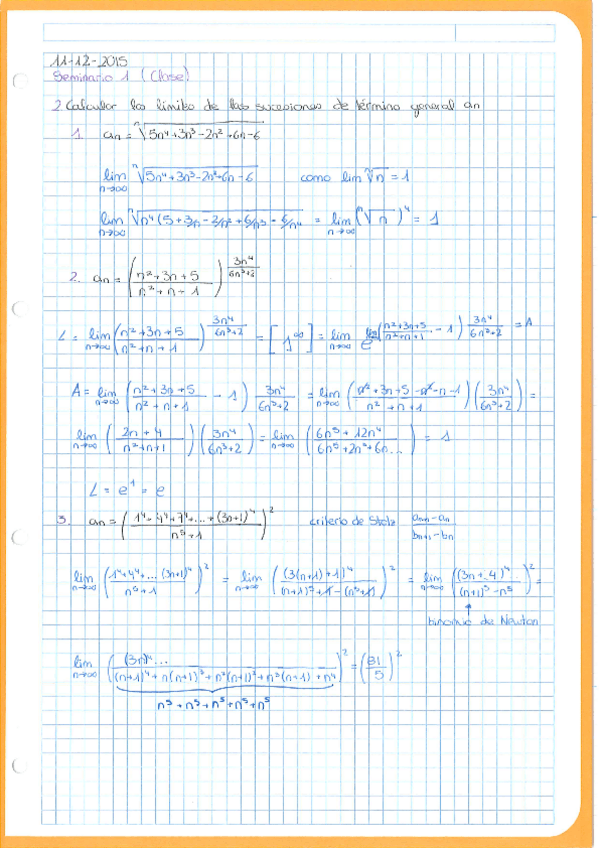 11-12-2015
Seminario 1 (Clase)
2. Calcular los límites de las sucesiones de término general an
1. an = ⁿ√(5n⁴+3n³-2n²+6n-6)
lim n→∞ ⁿ√(5n⁴+3n³-2n²+6n-6) como lim ⁿ√n = 1
lim n→∞ ⁿ√(n⁴(5+3/n-2/n²+6/n³-6/n⁴)) = lim n→∞ (ⁿ√n)⁴ = 1
2. an = ((n²+3n+5)/(n²+n+1))^(3n⁴/(6n³+2))
L = lim n→∞ ((n²+3n+5)/(n²+n+1))^(3n⁴/(6n³+2)) = [1^∞] = lim n→∞ e^(((n²+3n+5)/(n²+n+1) - 1) 3n⁴/(6n³+2)) = A
A = lim n→∞ ((n²+3n+5)/(n²+n+1) - 1) 3n⁴/(6n³+2) = lim n→∞ ((n²+3n+5-n²-n-1)/(n²+n+1)) (3n⁴/(6n³+2)) =
lim n→∞ ((2n+4)/(n²+n+1)) (3n⁴/(6n³+2)) = lim n→∞ ((6n⁵+12n⁴)/(6n⁵+2n²+6n...)) = 1
L = e¹ = e
3. an = ((1⁴+4⁴+7⁴+...+(3n+1)⁴)/(n⁵+1))² criterio de Stolz (an+1-an)/(bn+1-bn)
lim n→∞ ((1⁴+4⁴+...(3n+1)⁴)/(n⁵+1))² = lim n→∞ ((3(n+1)+1)⁴/((n+1)⁵+1-(n⁵+1)))² = lim n→∞ ((3n+4)⁴/((n+1)⁵-n⁵))² =
binomio de Newton
lim n→∞ ((3n)⁴.../((n+1)⁴+n(n+1)³+n²(n+1)²+n³(n+1)+n⁴))² = (81/5)²
n⁵+n⁵+n⁵+n⁵+n⁵